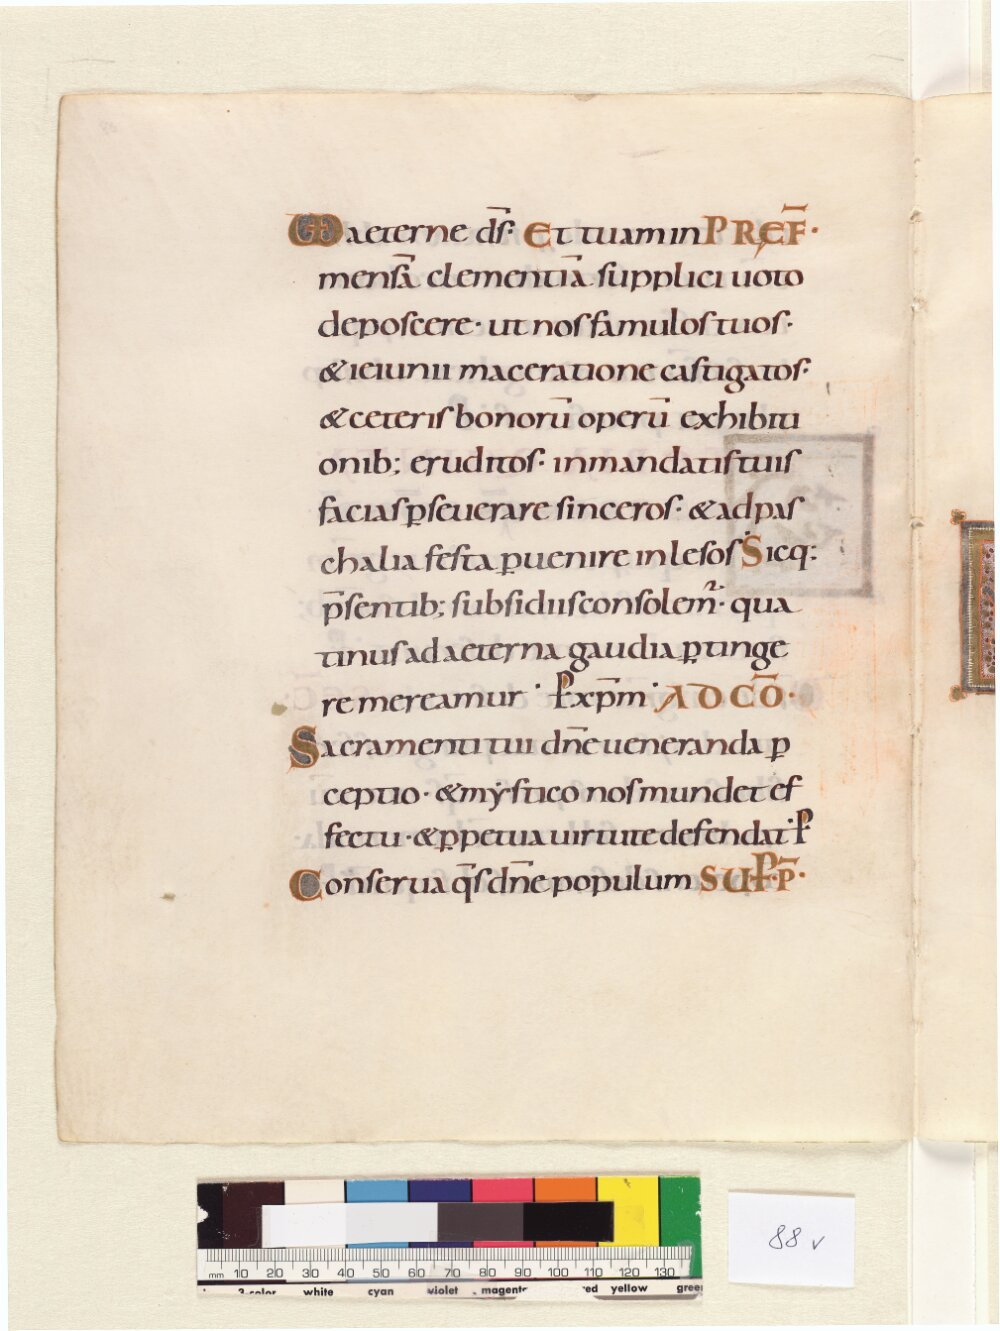 VD aeterne d̄s· Et tuam in PREF̄·
mensā clementiā supplici uoto
deposcere· ut nos famulos tuos·
& ieiunii maceratione castigatos·
& ceteris bonorū operū exhibiti
onib; eruditos· in mandatis tuis
facias ꝑseuerare sinceros· & ad pas
chalia festa ꝑuenire inlesos Sicq;
p̄sentib; subsidiis consolem̄· qua
tinus ad aeterna gaudia ꝑtinge
re mereamur· P xp̄m· AD CŌ·
Sacramenti tui dn̄e ueneranda ꝑ
ceptio· & mẏstico nos mundet ef
fectu· & ꝑpetua uirtute defendat· P
Conserua qs̄ dn̄e populum SUP·P̄·
88 v
mm 10 20 30 40 50 60 70 80 90 100 110 120 130
3-color white cyan violet magenta red yellow green